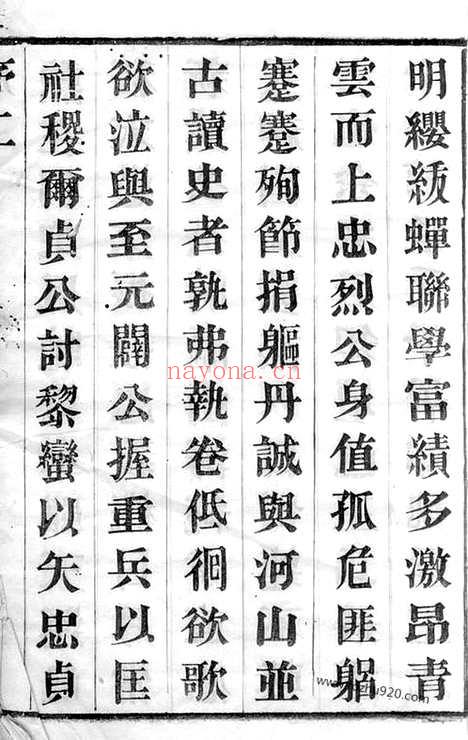 明纓紱蟬聯學富績多激昂青
雲而上忠烈公身值孤危匪躬
蹇蹇殉節捐軀丹誠與河山並
古讀史者孰弗執卷低徊欲歌
欲泣與至元闢公握重兵以匡
社稷爾貞公討黎蠻以矢忠貞
nayona.cn